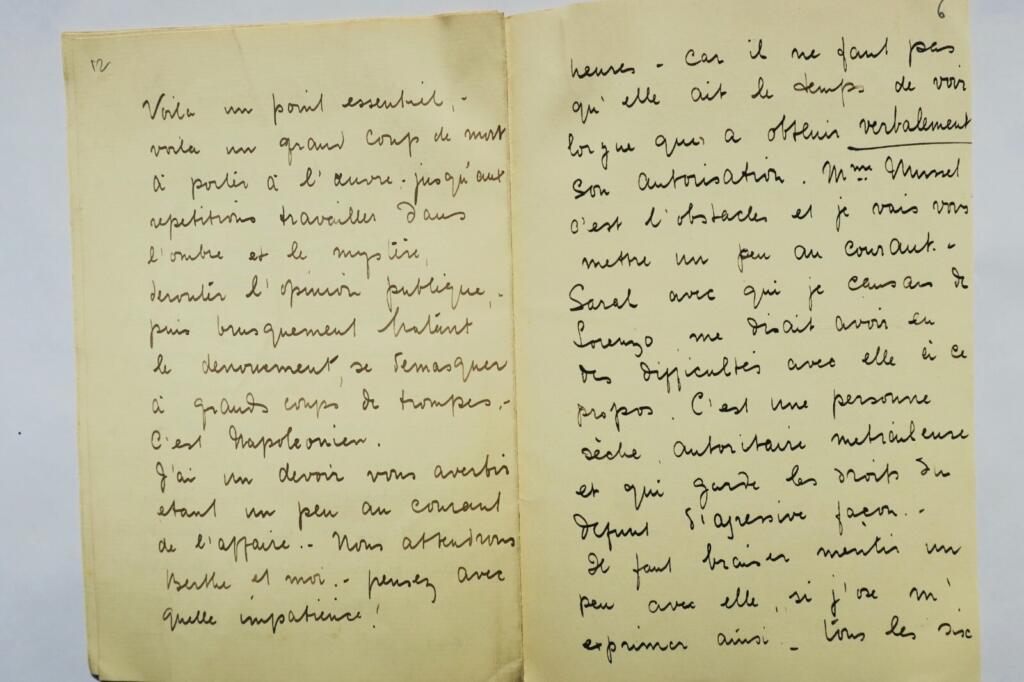 12
Voila un point essentiel, -
voila un grand coup de mort
à porter à l'œuvre. jusqu'aux
repetitions travailler dans
l'ombre et le mystère,
derouter l'opinion publique, -
puis brusquement hatant
le denouement, se demasquer
à grands coups de trompes, -
C'est Napoleonien.
J'ai un devoir vous avertir
etant un peu au courant
de l'affaire. - Nous attendrons
Berthe et moi. - pensez avec
quelle impatience!
6
heures - car il ne faut pas
qu'elle ait le temps de voir
lorgue ques a obtenir verbalement
son autorisation. Mme Musset
c'est l'obstacles et je vais vous
mettre un peu au courant. -
Sarah avec qui je causais de
Lorenzo me disait avoir eu
des difficultés avec elle à ce
propos. C'est une personne
sèche autoritaire meticuleuse
et qui garde les droits du
defunt d'agressive façon. -
Il faut biaiser mentir un
peu avec elle, si j'ose m'
exprimer ainsi - tous les